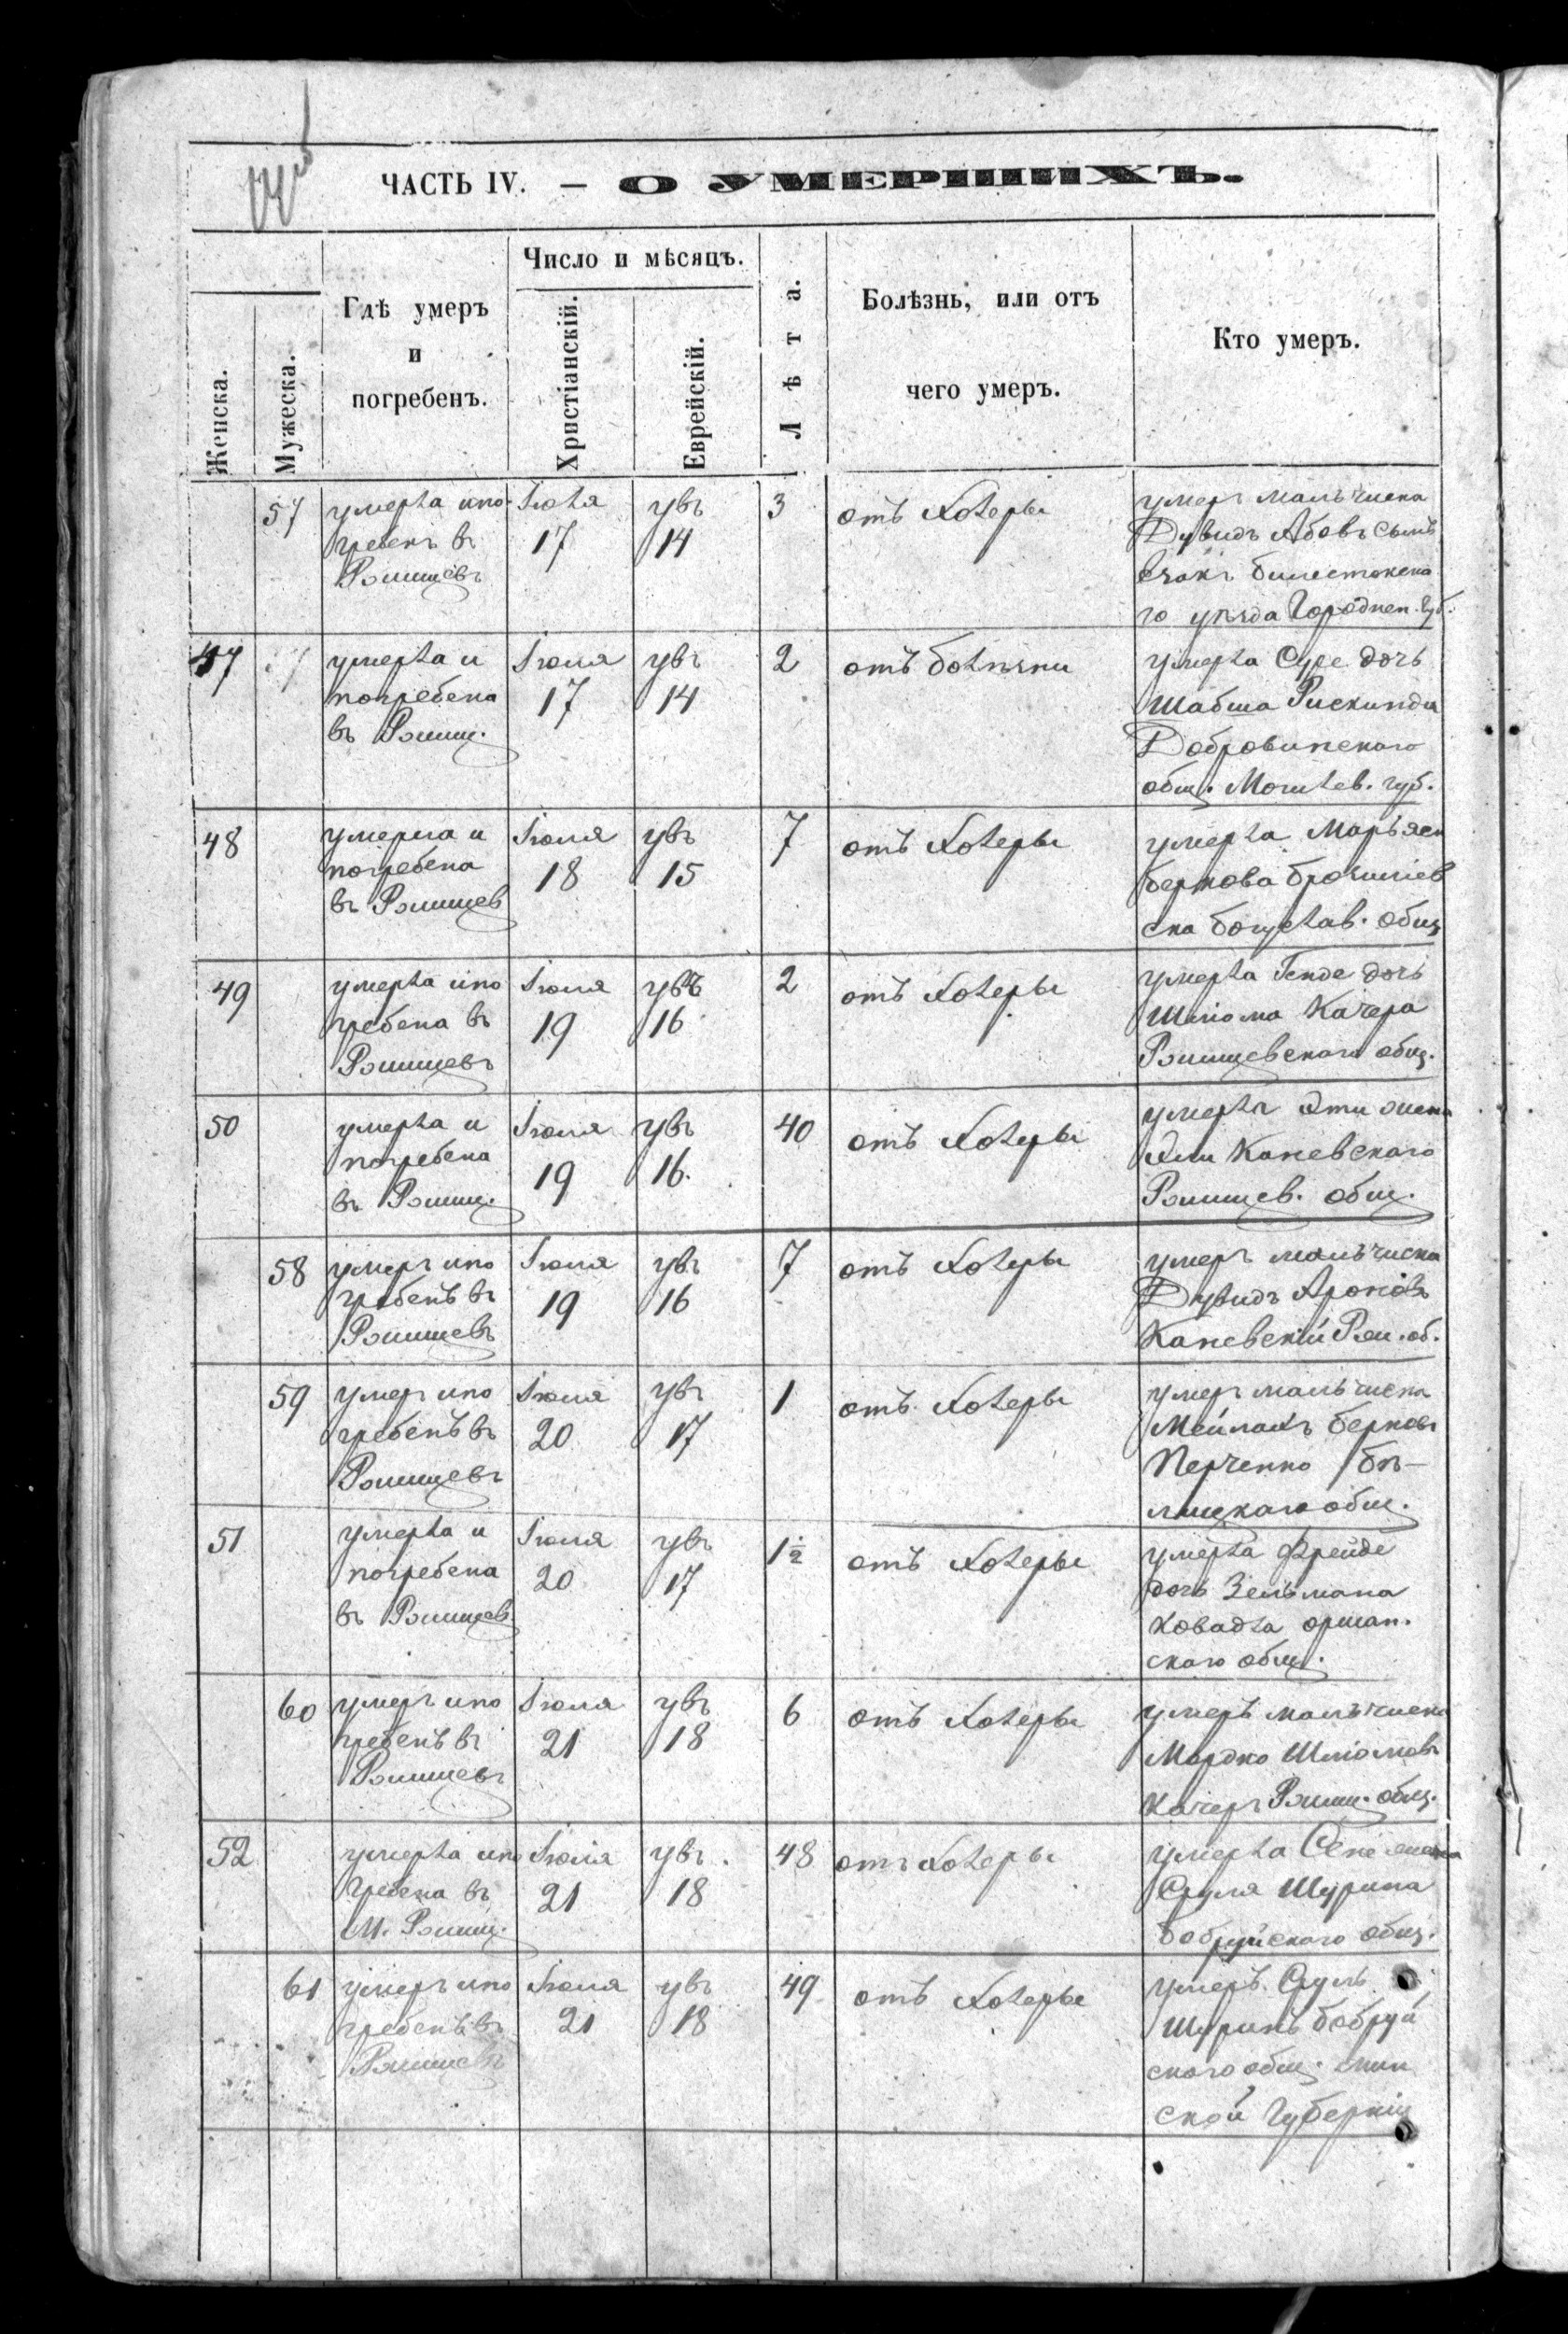 ЧАСТЬ IV. — О УМЕРШИХЪ.
Женска.
Мужеска.
Гдѣ умеръ
и
погребенъ.
Число и мѣсяцъ.
Христіанскій.
Еврейскій.
Лѣта.
Болѣзнь, или отъ
чего умеръ.
Кто умеръ.
57
умерла ипо
гребенъ въ
Рэпищевъ
Іюля
17
14
3
отъ холеры
умеръ мальчика
Дувидъ Абовъ сынъ
го уѣзда Городнен. Губ.
47
умерла и
погребена
въ Рэпищ.
Іюля
17
14
2
отъ болѣзни
умерла Суре дочь
Шабша Рискинда
Добровинскаго
общ. Могилев. губ.
48
умерла и
погребена
въ Рэпищев
Іюля
18
15
7
отъ холеры
умерла Марьяся
беркова
ска богуслав. общ
49
умерла ипо
гребена въ
Рэпищевъ
Іюля
19
16
2
отъ холеры
умерла Генде дочь
Шліома Качера
Рэпищевскаго общ.
50
умерла и
погребена
въ Рэпищ.
Іюля
19
16.
40
отъ холеры
умерла Эти жена
Каневскаго
Рэпищев. общ.
58
умеръ ипо
гребенъ въ
Рэпищевъ
Іюля
19
16
7
отъ холеры
умеръ мальчика
Дувидъ Ароновъ
Каневскій Рэп. об.
59
умеръ ипо
гребенъ въ
Рэпищевъ
Іюля
20
17
1
отъ холеры
умеръ мальчика
Мейлахъ берковъ
Перченко бѣ-
лицкаго общ.
51
умерла и
погребена
въ Рэпищев
Іюля
20
17
1½
отъ холеры
умерла Фрейде
дочь Зельмана
Ховадла оршан.
скаго общ.
60
умеръ ипо
гребенъ въ
Рэпищевъ
Іюля
21
18
6
отъ холеры
умеръ мальчика
Мордко Шліомовъ
Качеръ Рэпищ. общ.
52
умерла ипо
гребена въ
М. Рэпищ.
Іюля
21
18
48
отъ холеры
умерла жена
Сруля Шурина
бобруйскаго общ.
61
умеръ ипо
гребенъ въ
Рэпищевъ
Іюля
21
18
49
отъ холеры
умеръ Сруль
Шуринъ бобруй
скаго общ. мин
ской Губерніи